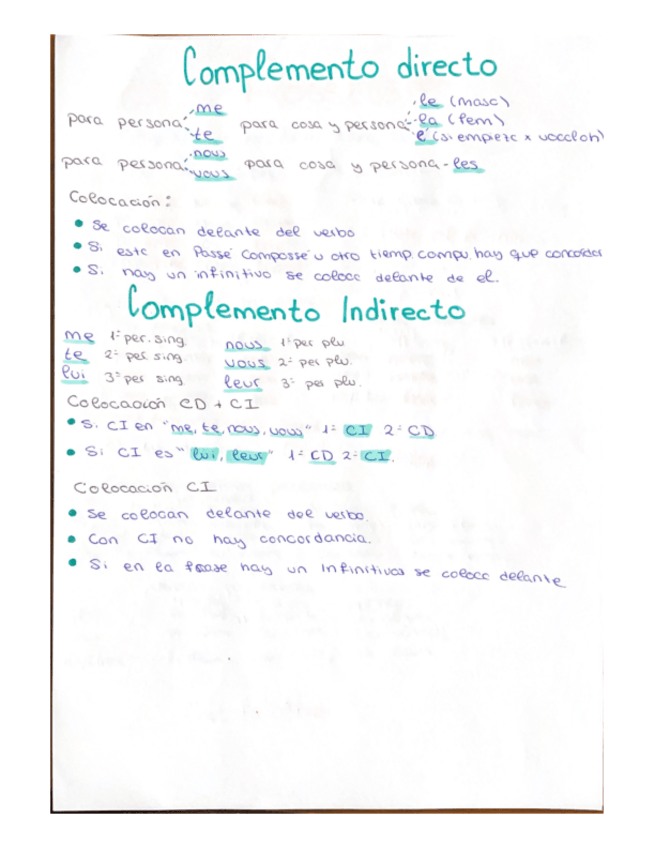 Complemento directo
para persona me te para cosa y persona le (masc) la (fem) l' (si empieze x vocal o h)
para persona nous vous para cosa y persona - les
Colocación:
• Se colocan delante del verbo
• Si este en Passé Compossé u otro tiemp. compu. hay que concordar
• Si hay un infinitivo se coloca delante de el.
Complemento Indirecto
me 1ª per. sing nous 1ª per plu
te 2ª per sing. vous 2ª per plu.
lui 3ª per sing leur 3ª per plu.
Colocación CD + CI
• Si CI en "me, te, nous, vous" 1º CI 2º CD
• Si CI es "lui, leur" 1º CD 2º CI.
Colocación CI
• Se colocan delante del verbo.
• Con CI no hay concordancia.
• Si en la frase hay un Infinitivos se coloca delante